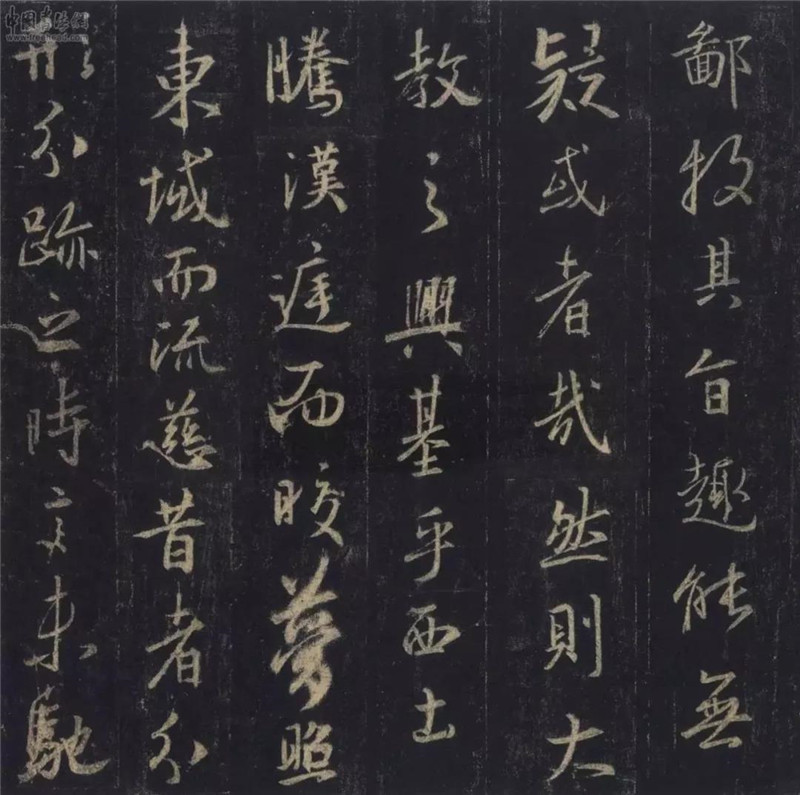 鄙投其旨趣能無
疑或者哉然則大
教之興基乎西土
騰漢庭而皎夢照
東域而流慈昔者分
形分跡之時言未馳
中国书法網
www.freehead.com